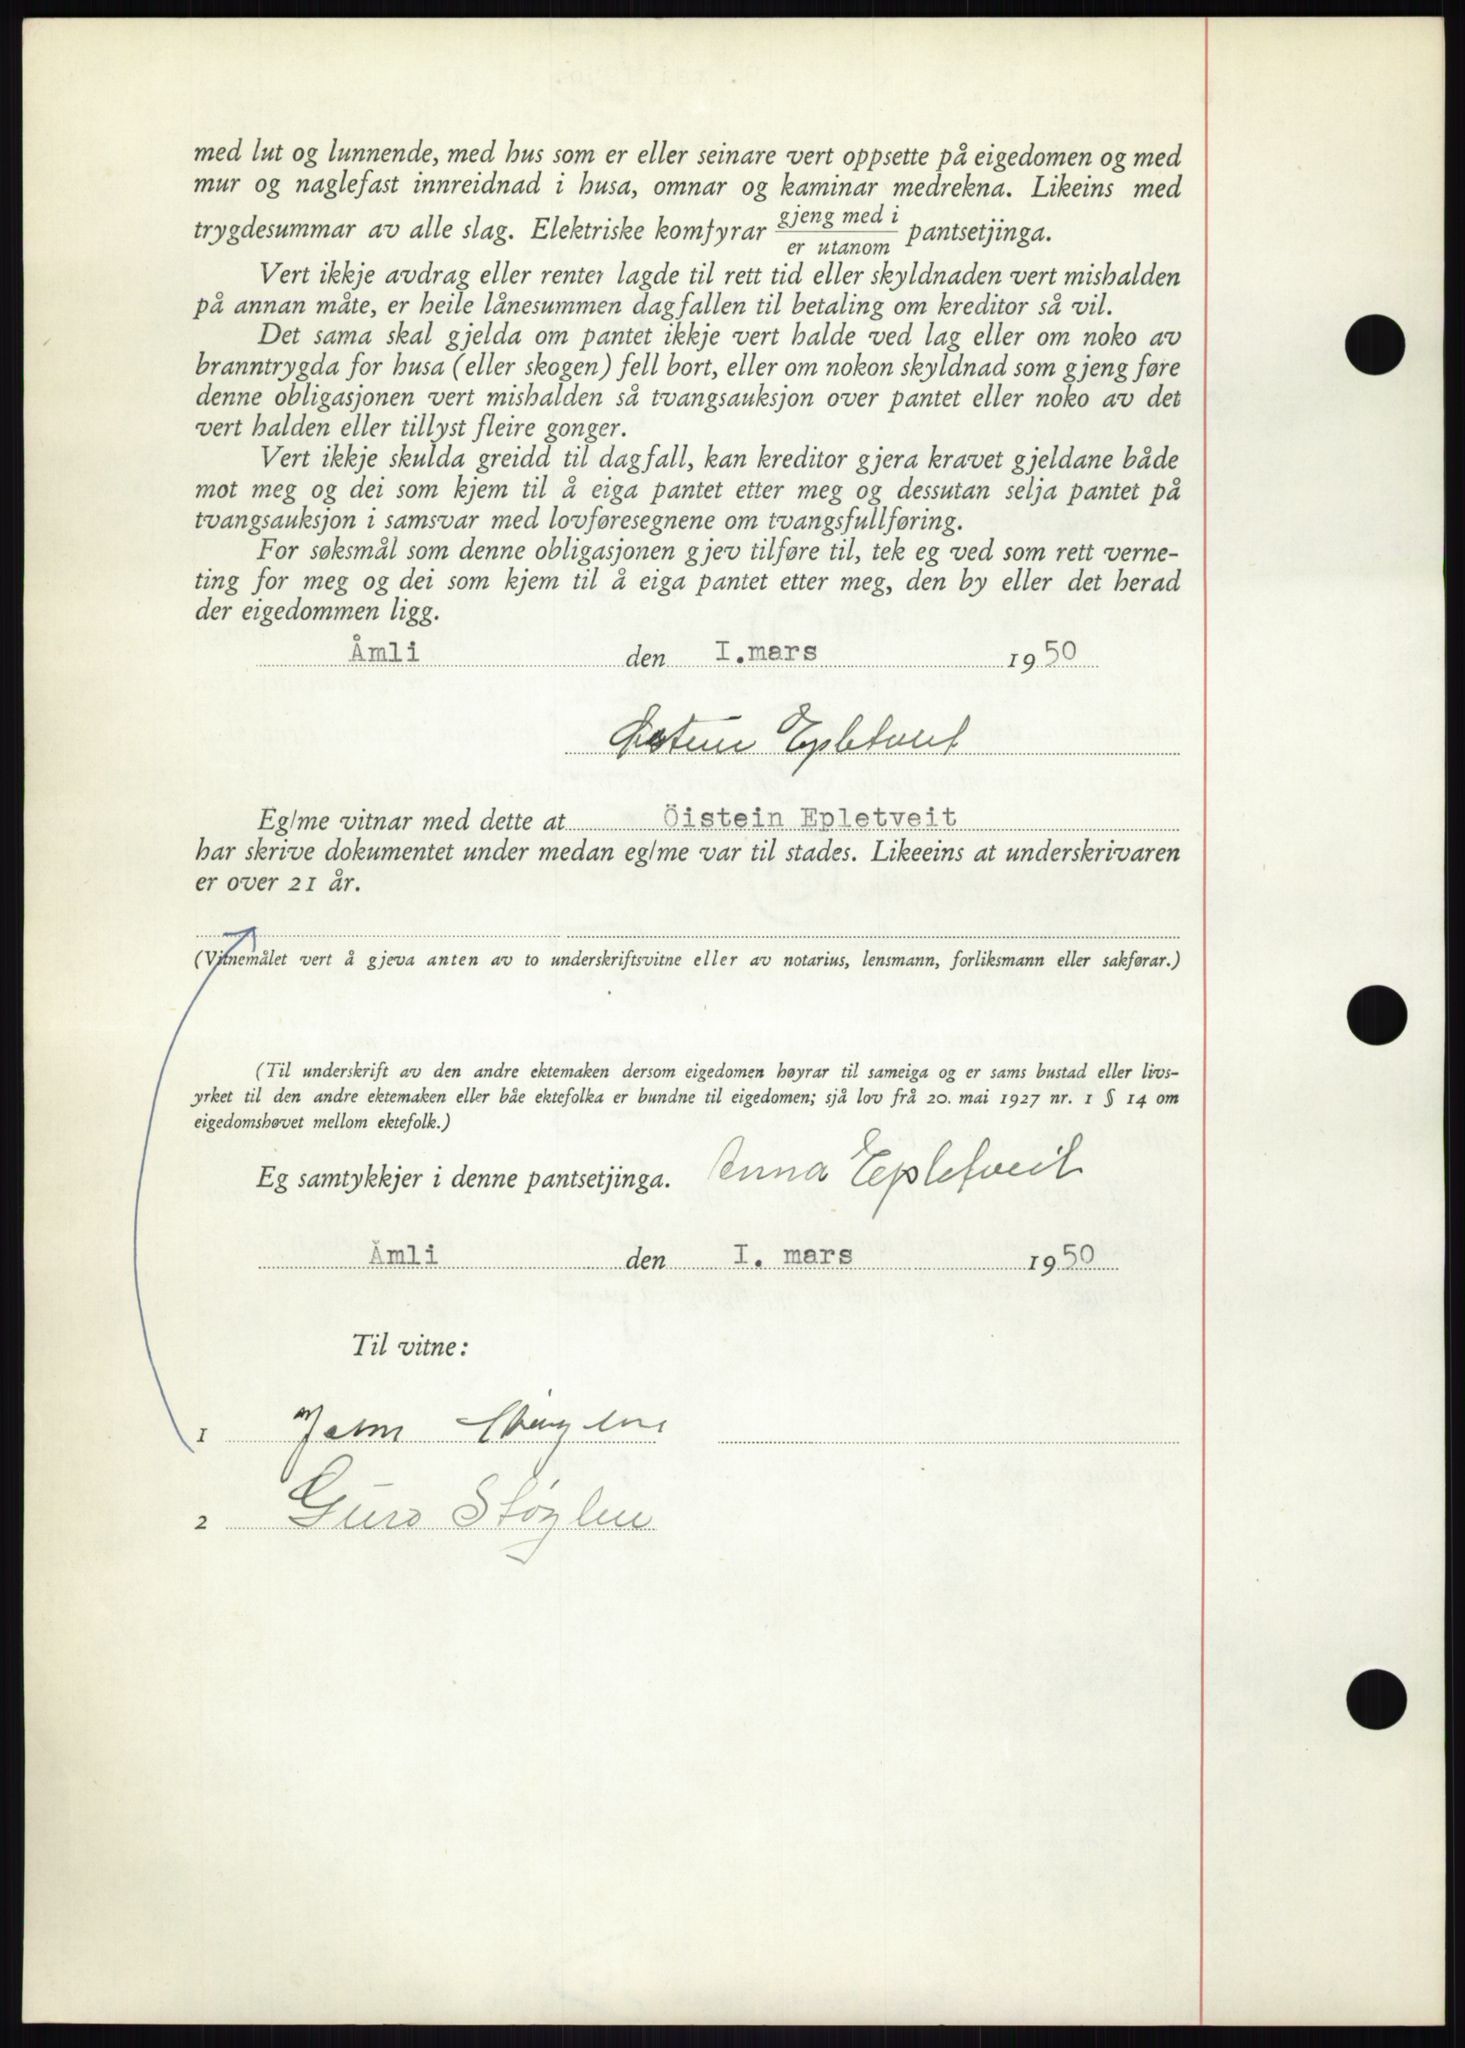 med lut og lunnende, med hus som er eller seinare vert oppsette på eigedomen og med
mur og naglefast innreidnad i husa, omnar og kaminar medrekna. Likeins med
trygdesummar av alle slag. Elektriske komfyrar gjeng med i / er utanom pantsetjinga.
Vert ikkje avdrag eller renter lagde til rett tid eller skyldnaden vert mishalden
på annan måte, er heile lånesummen dagfallen til betaling om kreditor så vil.
Det sama skal gjelda om pantet ikkje vert halde ved lag eller om noko av
branntrygda for husa (eller skogen) fell bort, eller om nokon skyldnad som gjeng føre
denne obligasjonen vert mishalden så tvangsauksjon over pantet eller noko av det
vert halden eller tillyst fleire gonger.
Vert ikkje skulda greidd til dagfall, kan kreditor gjera kravet gjeldane både
mot meg og dei som kjem til å eiga pantet etter meg og dessutan selja pantet på
tvangsauksjon i samsvar med lovføresegnene om tvangsfullføring.
For søksmål som denne obligasjonen gjev tilføre til, tek eg ved som rett verne-
ting for meg og dei som kjem til å eiga pantet etter meg, den by eller det herad
der eigedommen ligg.
Åmli den I.mars 1950
Epletveit
Eg/me vitnar med dette at Öistein Epletveit
har skrive dokumentet under medan eg/me var til stades. Likeeins at underskrivaren
er over 21 år.
(Vitnemålet vert å gjeva anten av to underskriftsvitne eller av notarius, lensmann, forliksmann eller sakførar.)
(Til underskrift av den andre ektemaken dersom eigedomen høyrar til sameiga og er sams bustad eller livs-
yrket til den andre ektemaken eller båe ektefolka er bundne til eigedomen; sjå lov frå 20. mai 1927 nr. 1 § 14 om
eigedomshøvet mellom ektefolk.)
Eg samtykkjer i denne pantsetjinga. Anna Epletveit
Åmli den I. mars 1950
Til vitne:
1
2 Guro Støylen